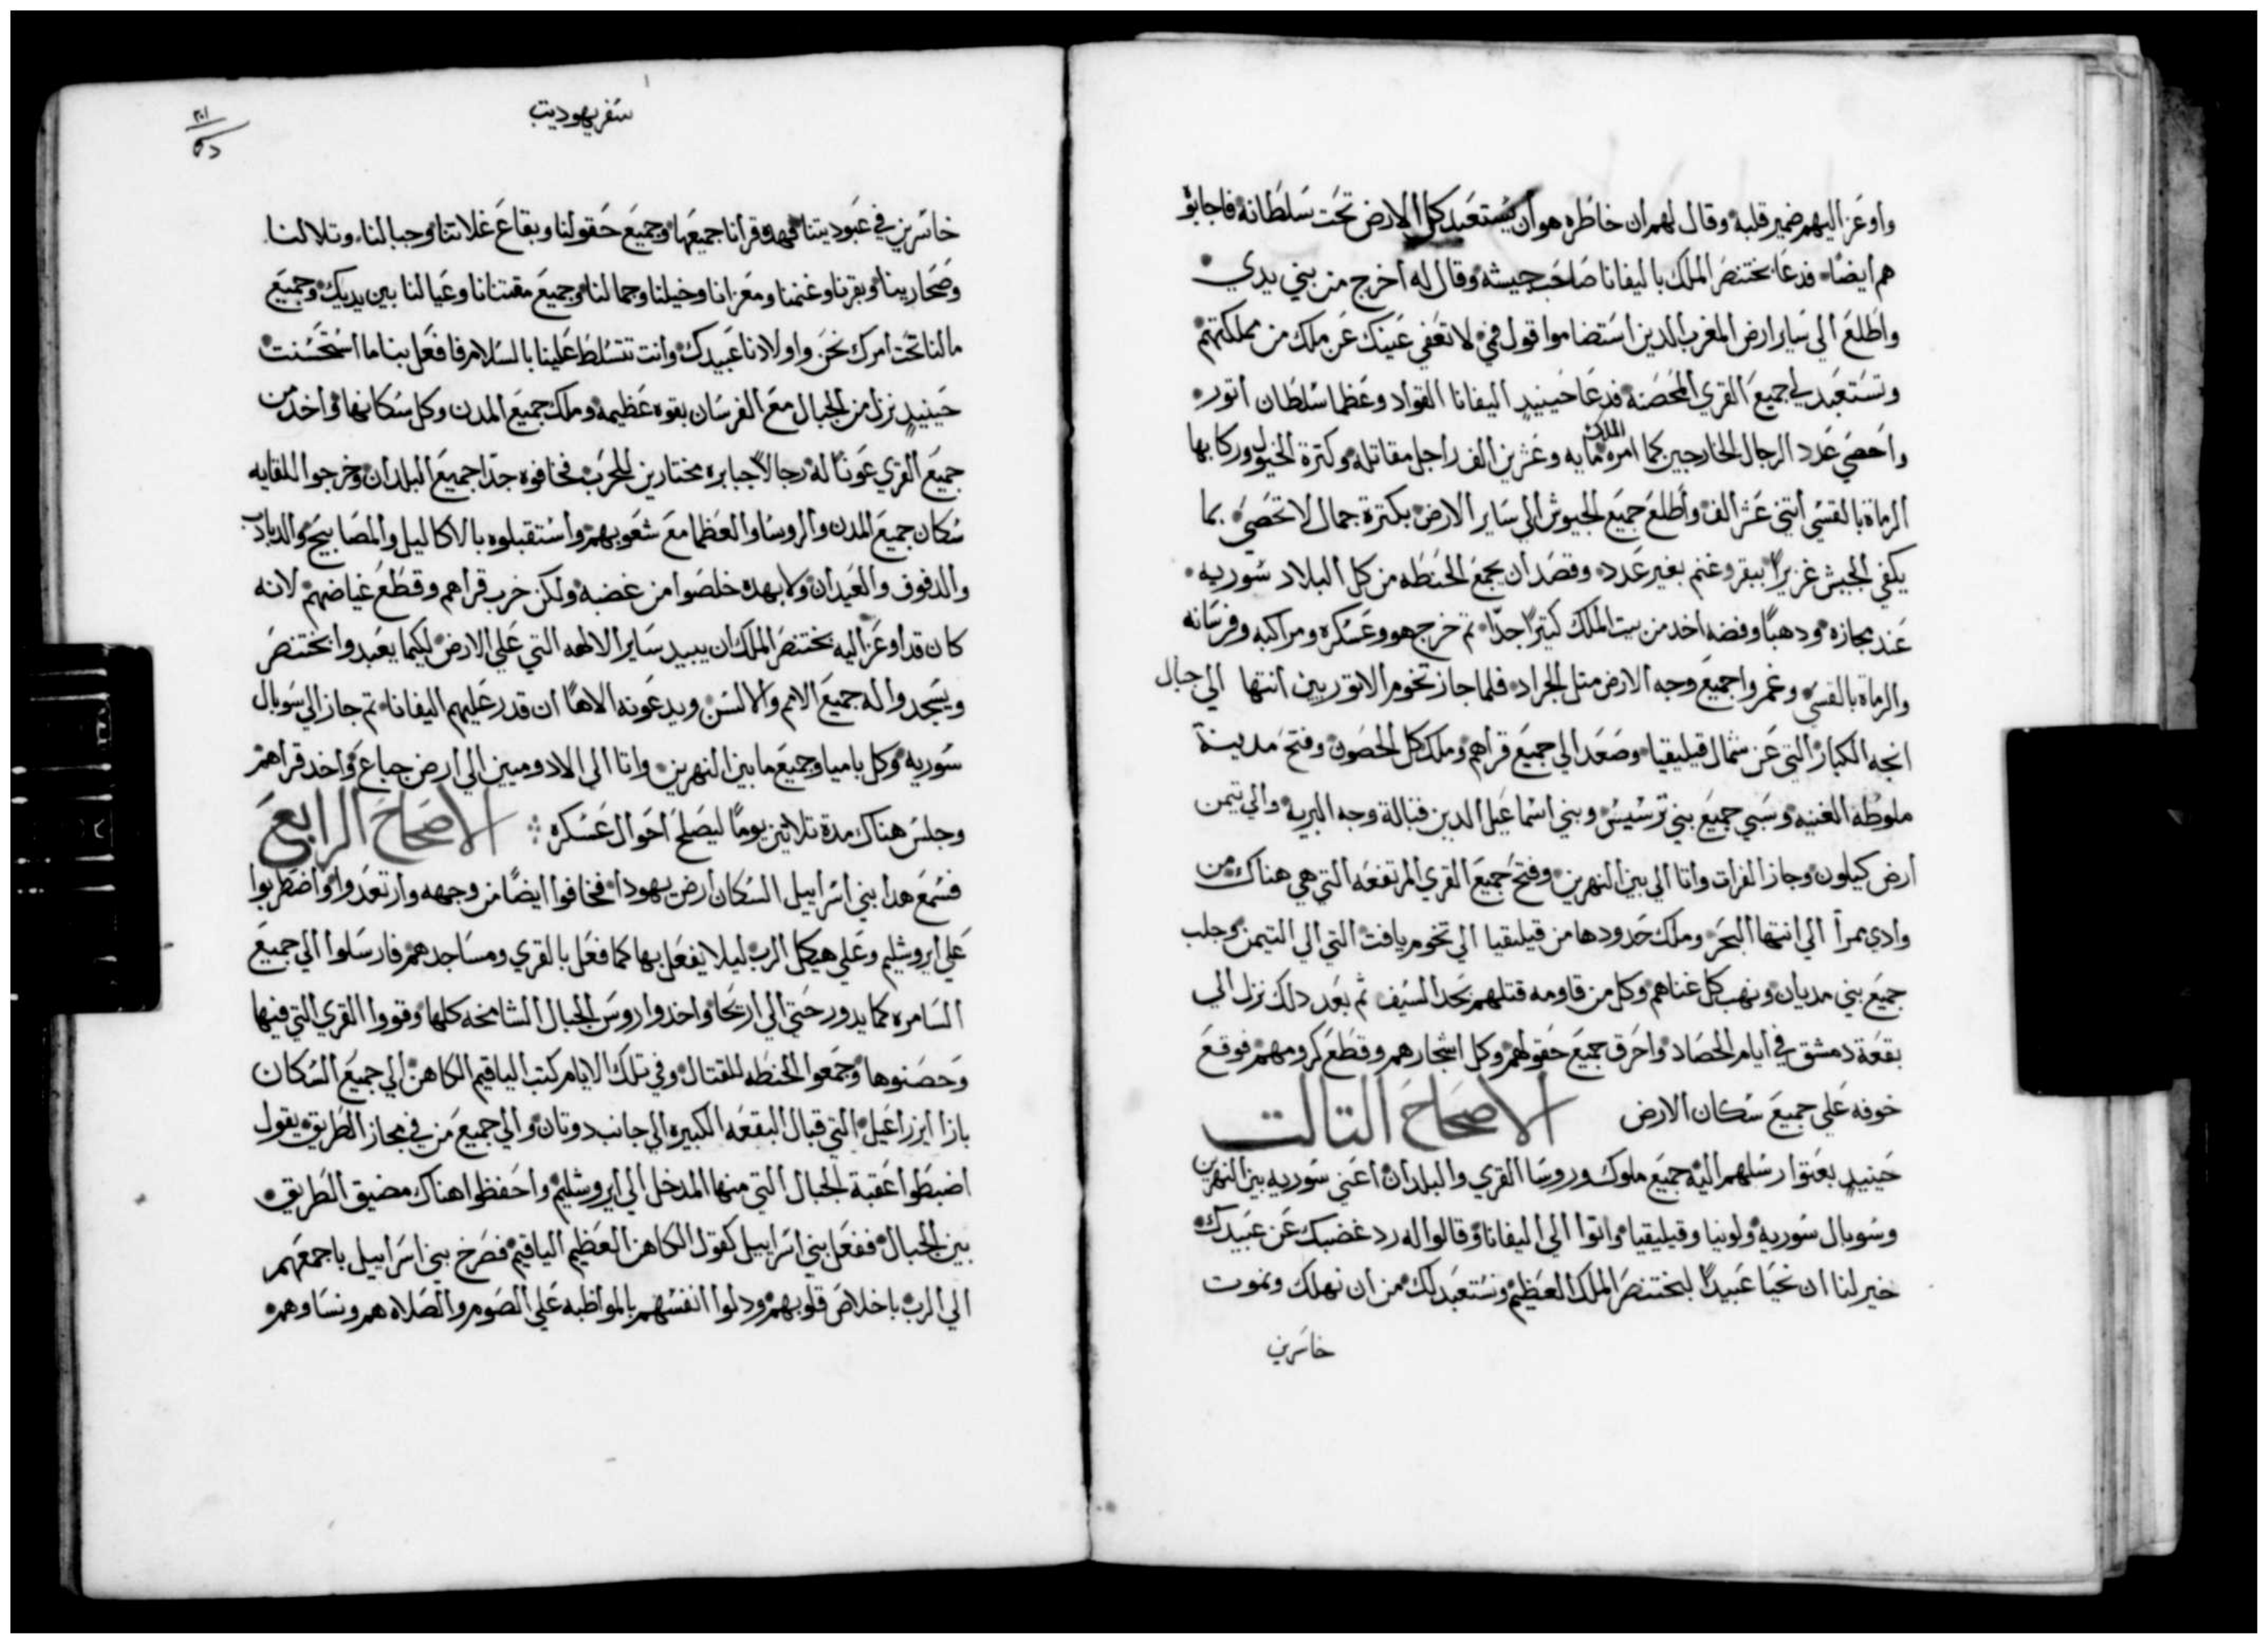 واوعز اليهم ضمير قلبه وقال لهم ان خاطره هو ان يستعبد كل الارض تحت سلطانه فاجابو
هم ايضًا فدعا بختنصر الملك باليفانا صاحب جيشه وقال له اخرج من بني يدي
واطلع الي ساير ارض المغرب الدين استضاموا قول في لا تعفي عينك عن ملك من مملكتهم
وتستعبد لي جميع القري المحصنه فدعا حينيدٍ اليفانا القواد وعظما سلطان اتور
واحصي عدد الرجال الخارجين كما امره الملك مايه وعشرين الف راجل مقاتله وكترة الخيول وركابها
الرماة بالقسي اتني عشر الف واطلع جميع الجيوش الي ساير الارض بكترة جمال لا تحصي بما
يكفي الجيش غزيرًا ببقر وغنم بغير عدد وقصد ان يجمع الحنطه من كل البلاد سوريه
عند مجازه ودهبًا وفضه اخد من بيت الملك كتيرًا جدًا تم خرج هو وعسكره ومراكبه وفرسانه
والرماة بالقسي وغمروا جميع وجه الارض متل الجراد فلما جاز تخوم الاتوريين انتها الي جبال
انجه الكبار التي عن شمال قيليقيا وصعد الي جميع قراهم وملك كل الحصون وفتح مدينة
ملوطه الغنيه وسبي جميع بني ترسيس وبني اسماعيل الدين قبالة وجه البريه والي تيمن
ارض كيلون وجاز الفرات واتا الي بين النهرين وفتح جميع القري المرتفعه التي هي هناك من
وادي ممرا الي انتها البحر وملك حدودها من قيليقيا الي تخوم يافت التي الي التيمن وجلب
جميع بني مديان ونهب كل غناهم وكل من قاومه قتلهم بحد السيف ثم بعد دلك نزل الي
بقعة دمشق في ايام الحصاد واحرق جميع حقولهم وكل اشجارهم وقطع كرومهم فوقع
خوفه علي جميع سكان الارض الاصحاح التالت
حينيدٍ بعتوا رسلهم اليه جميع ملوك وروسا القري والبلدان اعني سوريه بين النهرين
وسوبال سوريه ولوبيا وقيليقيا واتوا الي اليفانا وقالوا له رد غضبك عن عبيدك
خير لنا ان نحيا عبيدًا لبختنصر الملك العظيم ونستعبد لك من ان نهلك ونموت
خاسرين
سفر يهوديت
خاسرين في عبوديتنا فهده قرانا جميعها وجميع حقولنا وبقاع غلاتنا وجبالنا وتلالنا
وصحارينا وبقرنا وغنمنا ومعزانا وخيلنا وجمالنا وجميع مقتنانا وعيالنا بين يديك وجميع
مالنا تحت امرك نحن واولادنا عبيدك وانت تتسلط علينا بالسلام فافعل بنا ما استحسنت
حينيدٍ نزل من الجبال مع الفرسان بقوه عظيمه وملك جميع المدن وكل سكانها واخد من
جميع القري عونًا له رجالاً جبابره مختارين للحرب فخافوه جدًا جميع البلدان وخرجوا للقايه
سكان جميع المدن والروسا والعظما مع شعوبهم واستقبلوه بالاكاليل والمصابيح والدبادب
والدفوف والعيدان ولا بهده خلصوا من غضبه ولكن خرب قراهم وقطع غياضهم لانه
كان قد اوعز اليه بختنصر الملك ان يبيد ساير الالهه التي علي الارض لكيما يعبدوا بختنصر
ويسجدوا له جميع الامم والالسن ويدعونه الاهًا ان قدر عليهم اليفانا تم جاز الي سوبال
سوريه وكل باميا وجميع ما بين النهرين واتا الي الادوميين الي ارض جباع واخد قراهم
وجلس هناك مدة تلاتين يومًا ليصلح احوال عسكره الاصحاح الرابع
فسمع هدا بني اسراييل السكان ارض يهودا فخافوا ايضًا من وجهه وارتعدوا واضطربوا
علي ايروشليم وعلي هيكل الرب ليلا يفعل بها كما فعل بالقري ومساجدهم فارسلوا الي جميع
السامره كما يدور حتي الي اريحا واخدوا روس الجبال الشامخه كلها وقووا القري التي فيها
وحصنوها وجمعوا الحنطه للقتال وفي تلك الايام كتب الياقيم الكاهن الي جميع السكان
بازا ايزراعيل التي قبال البقعه الكبيره الي جانب دوتان والي جميع من في مجاز الطريق يقول
اضبطوا عقبة الجبال التي منها المدخل الي ايروشليم واحفظوا هناك مضيق الطريق
بين الجبال ففعل بني اسراييل كقول الكاهن العظيم الياقيم فصرخ بني اسراييل باجمعهم
الي الرب باخلاص قلوبهم ودلوا انفسهم بالمواظبه علي الصوم والصلاه هم ونساوهم